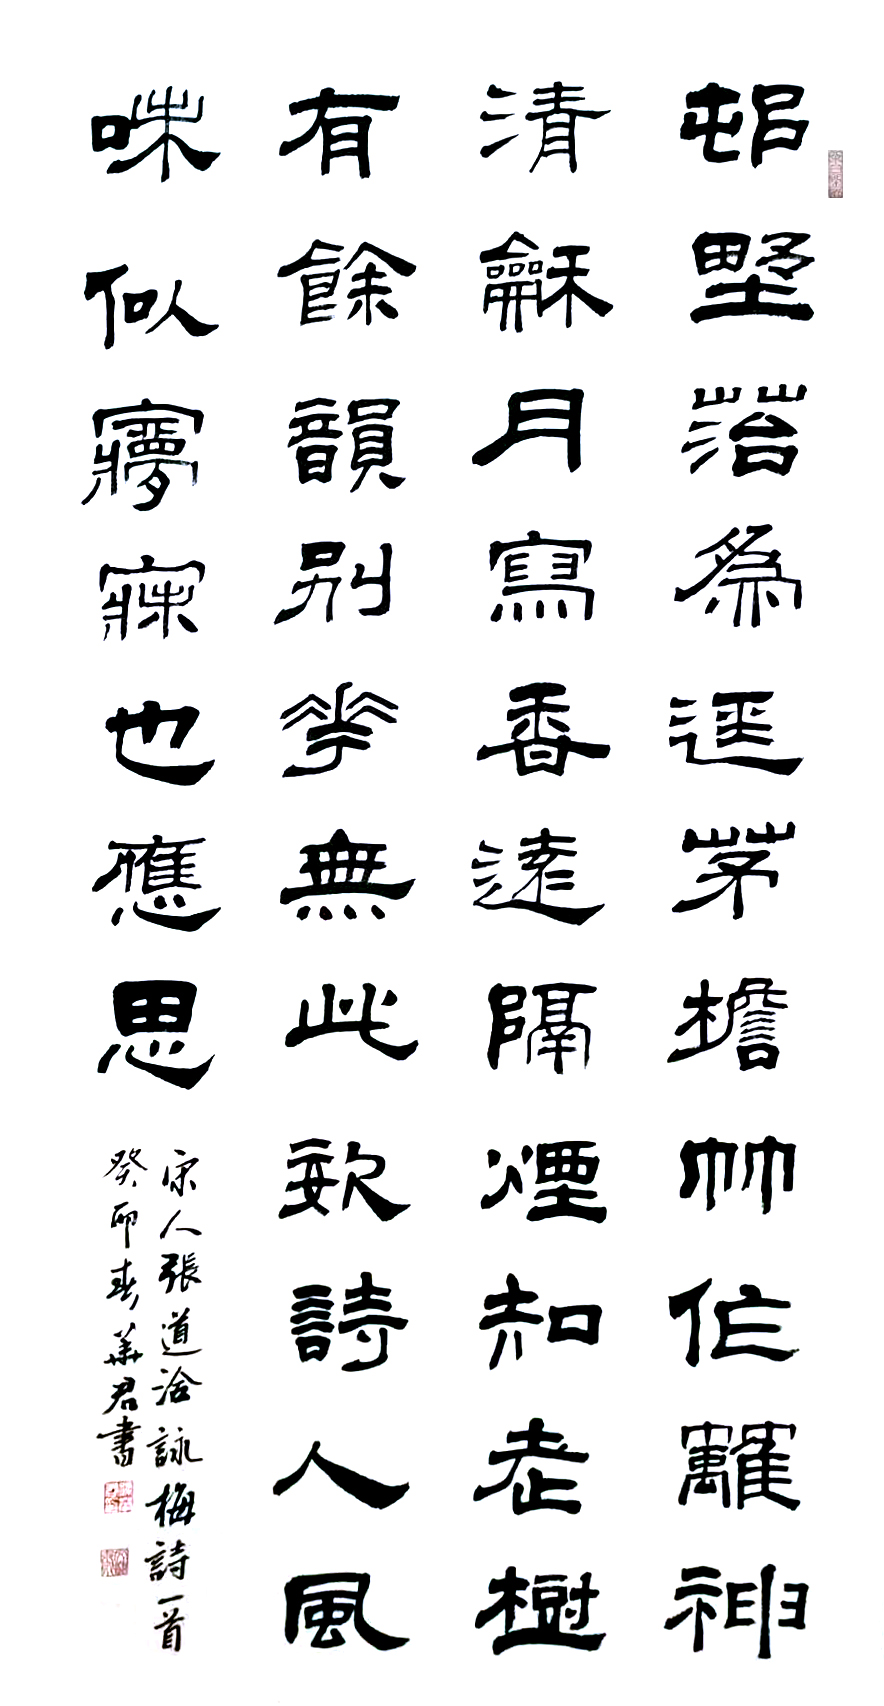 邨墅菭為逕茅檐竹作籬神
清龢月寫香遠隔煙知老樹
有餘韻別華無此姿詩人風
味似夢寐也應思
宋人張道洽詠梅詩一首
癸卯春華君書